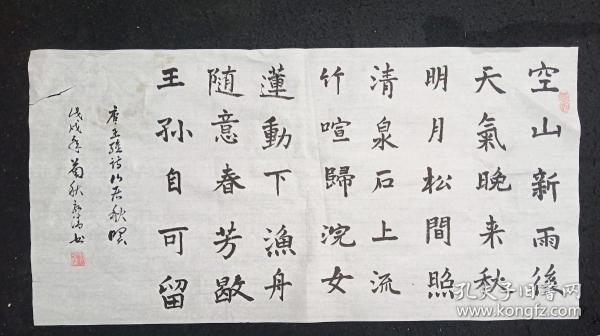 空山新雨後
天氣晚来秋
明月松間照
清泉石上流
竹喧歸浣女
蓮動下漁舟
随意春芳歇
王孙自可留
唐王維詩山居秋暝
戊戌年菊秋
孔夫子旧书网
www.kongfz.com